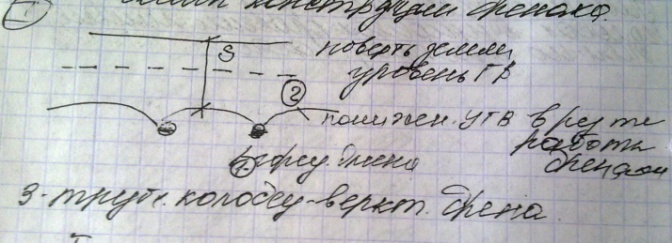 конструкции дренажа.
S
поверхн земли
уровень ГВ
2
понижен. УГВ в рез те
работы
дренажа
дрена
3-трубч. колодец-верт. дрена